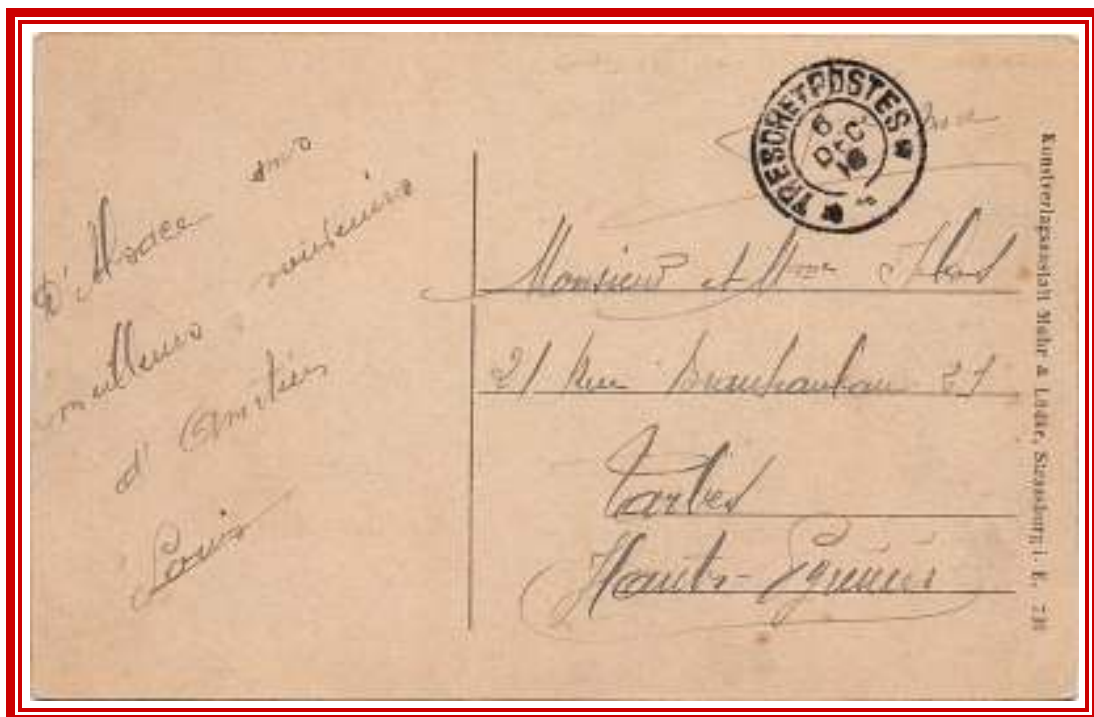 D'Alsace mes
meilleurs souvenirs
d'Amitiés
Louis
TRESOR ET POSTES
6
DEC
18
Monsieur et Mme
21 Rue 21
Tarbes
Hautes-Pyrénées
Kunstverlagsanstalt Mohr & Lüdke, Strassburg i. E.